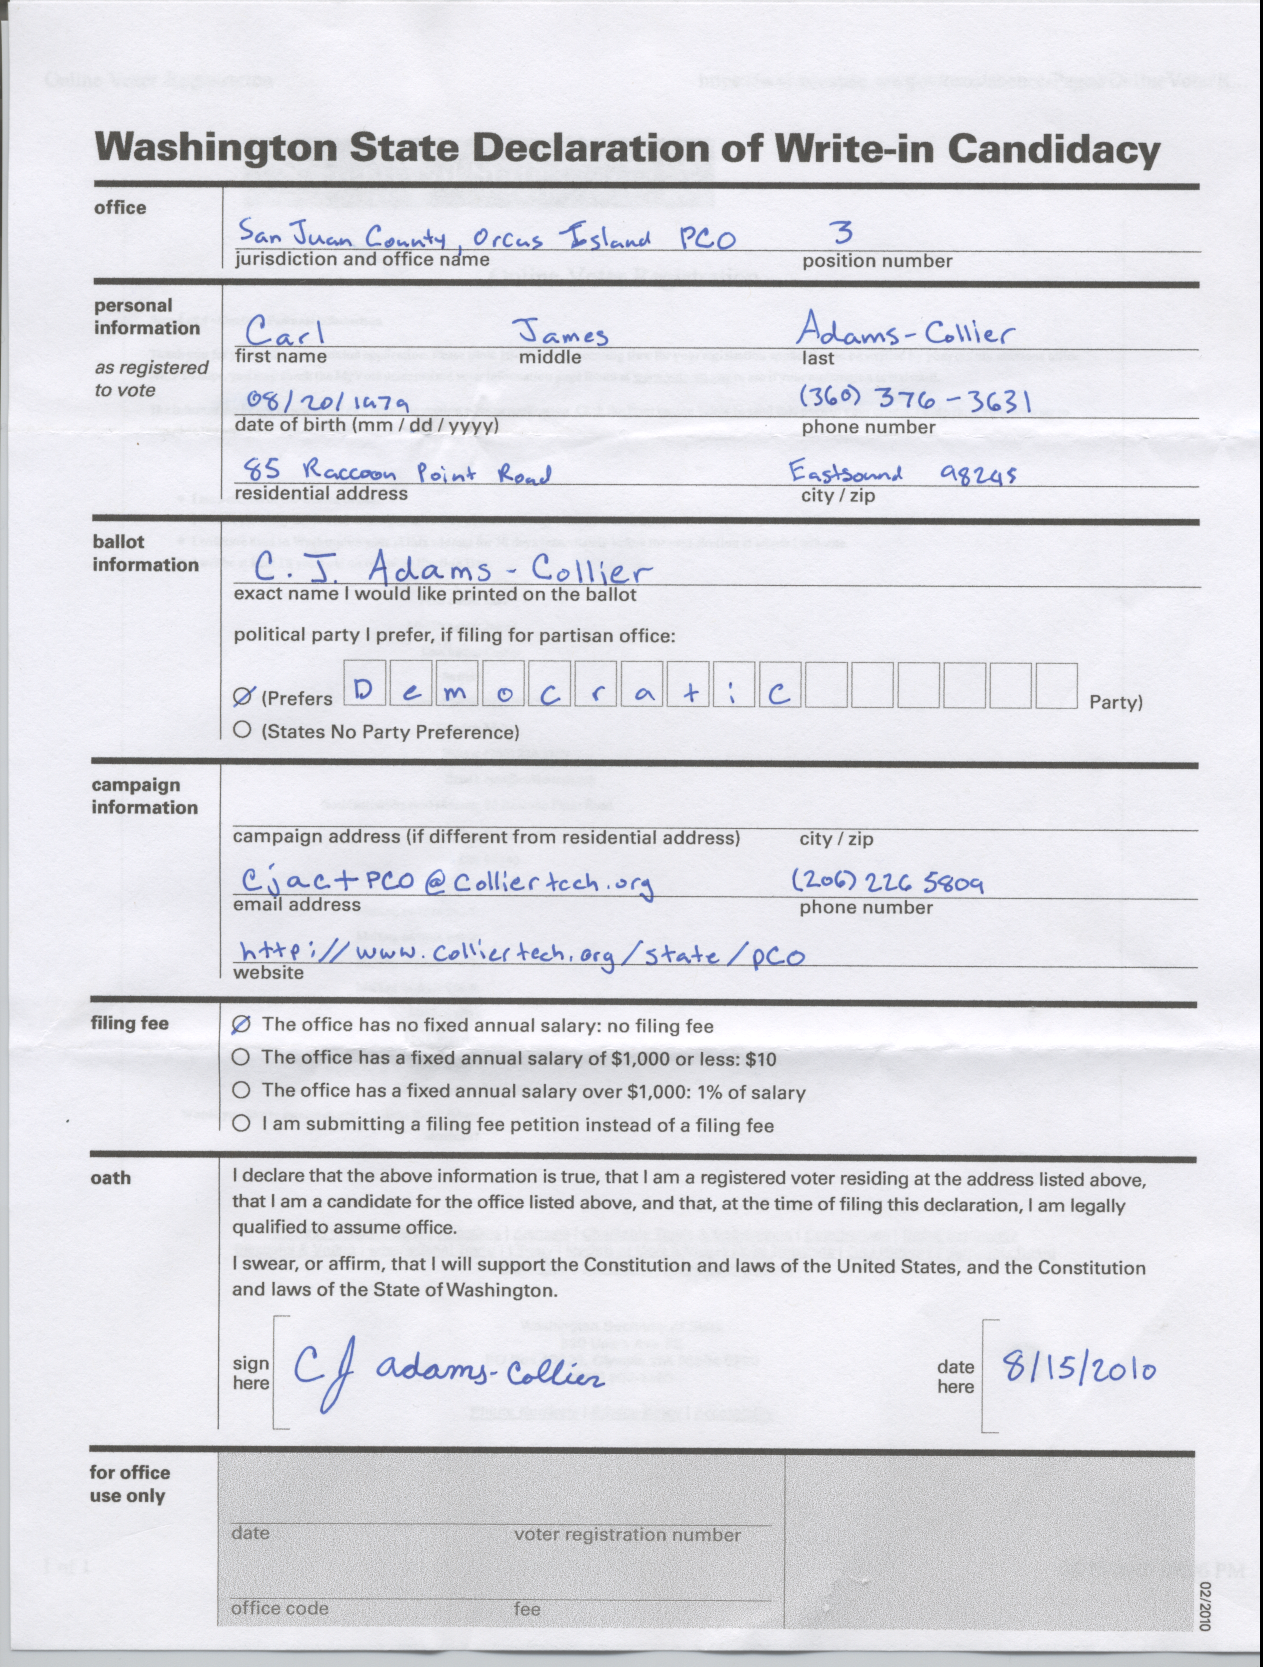 Washington State Declaration of Write-in Candidacy
office
San Juan County, Orcas Island PCO 3
jurisdiction and office name position number
personal information
as registered to vote
Carl James Adams-Collier
first name middle last
08/20/1979 (360) 376-3631
date of birth (mm / dd / yyyy) phone number
85 Raccoon Point Road Eastsound 98245
residential address city / zip
ballot information
C. J. Adams-Collier
exact name I would like printed on the ballot
political party I prefer, if filing for partisan office:
(Prefers Democratic Party)
(States No Party Preference)
campaign information
campaign address (if different from residential address) city / zip
cjac+PCO@colliertech.org (206) 226 5809
email address phone number
http://www.colliertech.org/state/pco
website
filing fee
The office has no fixed annual salary: no filing fee
The office has a fixed annual salary of $1,000 or less: $10
The office has a fixed annual salary over $1,000: 1% of salary
I am submitting a filing fee petition instead of a filing fee
oath
I declare that the above information is true, that I am a registered voter residing at the address listed above,
that I am a candidate for the office listed above, and that, at the time of filing this declaration, I am legally
qualified to assume office.
I swear, or affirm, that I will support the Constitution and laws of the United States, and the Constitution
and laws of the State of Washington.
sign here CJ adams-collier date here 8/15/2010
for office use only
date voter registration number
office code fee
02/2010